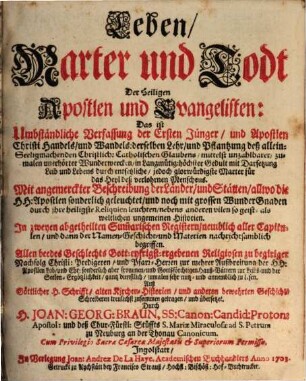 Leben/
Marter und Todt
Der Heiligen
Apostlen und Evangelisten:
Das ist
Umbständliche Verfassung der Ersten Jünger/ und Apostlen
Christi Handels/ und Wandels: derselben Lehr/ und Pflantzung deß allein-
Seeligmachenden Christlich- Catholischen Glaubens/ mittelst unzahlbarer/ zu-
malen unerhörter Wunderwerck
Leib und Lebens durch unschliche/ jedoch glorwürdigste Marter für
das Heyl deß verlohrnen Menschens.
Mit angemerckter Beschreibung der Länder/ und Städten/ allwo die
HH: Apostlen sonderlich geleuchtet/ und noch mit grossen WunderGnaden
durch jhre heiligste Reliquien leuchten/ nebens anderen vilen so geist- als
weltlichen ungemeinen Historien.
In zweyen abgetheilten Summarischen Registern/ nemblich aller Capitu-
len/ und dann der Namen/ Geschicht und Materien nachzuschlagen
begriffen.
Allen beedes Geschlechts Gott-eyfrigst-ergebenen Religiosen zu begiriger
Nachfolg Christi: Predigeren/ und Pfarr-Herren zur mehrer Außbreitung der HH:
Apostlen Lob/ und Ehr
Auß
Göttlicher H. Schrifft/ alten Kirchen-Historien/ und anderen bewehrten Geschicht-
Schreiberen treulichst zusammen getragen/ und übersetzt.
Durch
H. JOAN: GEORG: BRAUN, SS: Canon: Candid: Proton:
Apostol: und deß Chur-Fürstl: Stiffts S. Mariæ Miraculosæ ad S. Petrum
zu Neuburg an der Thonau Canonicum.
Cum Privilegio Sacræ Cæsareæ Majestatis & Superiorum Permissu.
Ingolstatt/
In Verlegung Joann Andreæ De La Haye, Academischen Buchhandlers Anno 1703.
Getruckt zu Augspurg bey Francisco Straub/ Hochfl: Bischöfl: Hof-Buchtrucker.